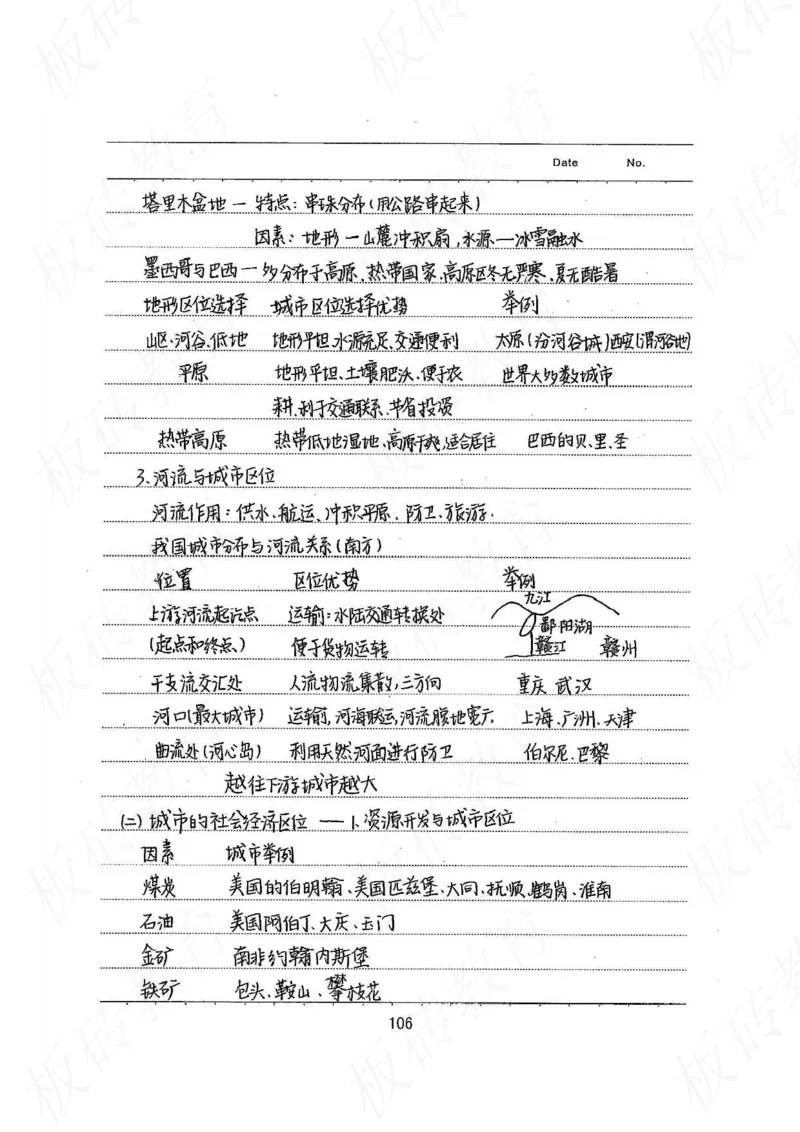 Date No.
塔里木盆地 — 特点：串珠分布(用公路串起来)
因素：地形 — 山麓冲积扇,水源 — 冰雪融水
墨西哥与巴西 — 多分布于高原、热带国家、高原区冬无严寒、夏无酷暑
地形区位选择 城市区位选择优势 举例
山区、河谷、低地 地形平坦、水源充足、交通便利 太原(汾河谷城)西安(渭河谷地)
平原 地形平坦、土壤肥沃、便于农 世界大多数城市
耕、利于交通联系、节省投资
热带高原 热带低地湿地、高原干爽,适合居住 巴西的贝、里、圣
3.河流与城市区位
河流作用：供水、航运、冲积平原、防卫、旅游.
我国城市分布与河流关系(南方)
位置 区位优势 举例
九江
上游河流起讫点 运输：水陆交通转换处 鄱阳湖
(起点和终点、) 便于货物运转 赣江 赣州
干支流交汇处 人流物流集散,三方向 重庆 武汉
河口(最大城市) 运输前,河海联运,河流腹地宽广 上海、广州、天津
曲流处(河心岛) 利用天然河面进行防卫 伯尔尼、巴黎
越往下游城市越大
(二)城市的社会经济区位 — 1、资源开发与城市区位
因素 城市举例
煤炭 美国的伯明翰、美国匹兹堡、大同、抚顺、鹤岗、淮南
石油 美国阿伯丁、大庆、玉门
金矿 南非约翰内斯堡
铁矿 包头、鞍山、攀枝花
106
板砖教育